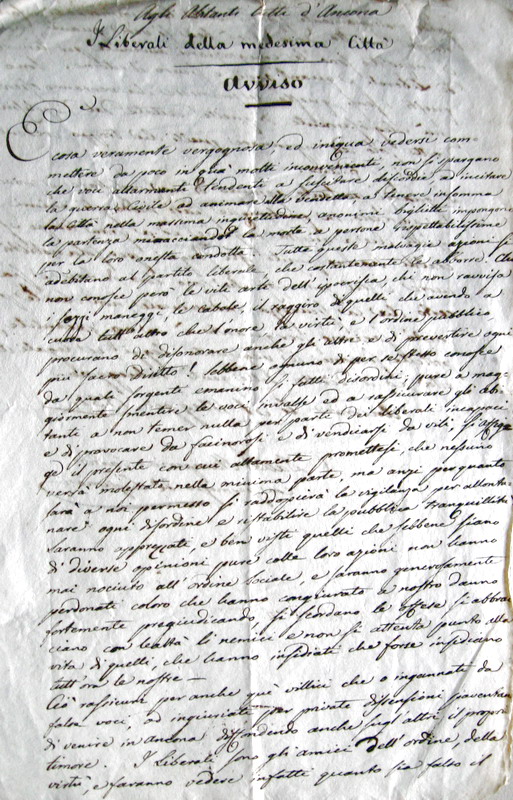 Agli Abitanti della Città d'Ancona
I Liberali della medesima Città
Avviso
È cosa veramente vergognosa, ed iniqua vedersi com-
mettere da poco in quà molti inconvenienti, non si spargono
che voci altamente tendenti a suscitare discordie a incitare
la guerra civile ad animare alla vendetta a tenere insomma
la Città nella massima inquietudine, anonimi biglietti impongono
la partenza minacciando la morte a persone rispettabilissime
per la loro onesta condotta. Tutte queste malvagie azioni si
adebitano al partito liberale, che costantemente le aborre. Chi
non conosce però le vili arti dell'ipocrisia, chi non ravvisa
i sozzi maneggi, le cabale, il raggiro di quelli che avendo a
cuore tutt'altro che l'onore la virtù e l'ordine pubblico
procurano di disonorare anche gli altri e di pervertire ogni
più sacro diritto! Sebbene ognuno di per se stesso conosce
da quale sorgente emanino sì fatti disordini, pure a mag-
giormente smentire le voci invalse ed a rassicurare gli abi-
tanti a non temer nulla per parte dei liberali incapaci
e di provocare da facinorosi e di vendicarsi da vili, si affig-
ge il presente con cui altamente promettesi, che nessuno
verrà molestato nella minima parte, ma anzi per quanto
sarà a noi permesso si raddoppierà la vigilanza per allonta-
nare ogni disordine e ristabilire la pubblica tranquillità
saranno apprezzati, e ben visti quelli che sebbene siano
di diverse opinioni pure colle loro azioni non hanno
mai nociuto all'ordine sociale, e saranno generosamente
perdonati coloro che hanno congiurato a nostro danno
fortemente pregiudicando, si scordano le offese si abbra-
ciano con lealtà li nemici e non si attenta punto alla
vita di quelli, che hanno insidiato che forse insidiano
tutt'ora le nostre —
Ciò rassicuri per anche què villici che o ingannati da
false voci, od ingiuriati per private dissensioni paventano
di venire in ancona diffondendo anche negl'altri il proprio
timore. I Liberali sono gli amici dell'ordine, della
virtù, e faranno vedere infatti quanto sia falso il